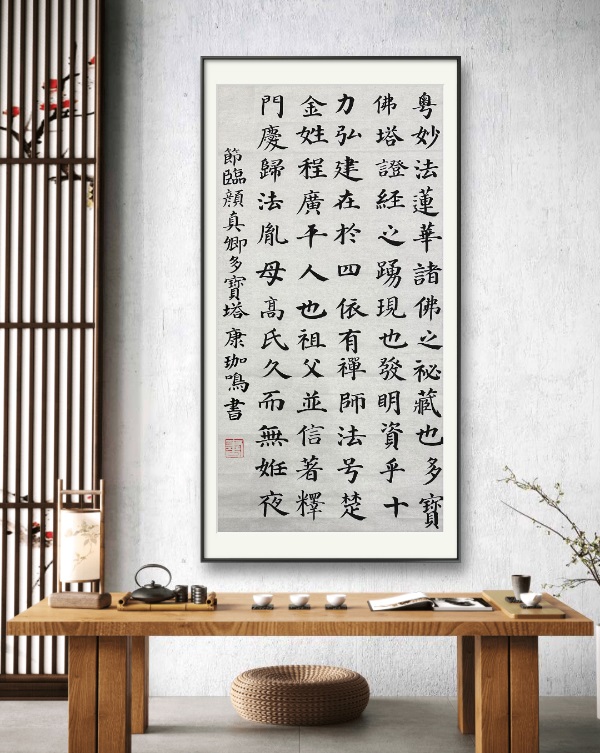 粤妙法蓮華諸佛之祕藏也多寶
佛塔證經之踴現也發明資乎十
力弘建在於四依有禪師法号楚
金姓程廣平人也祖父並信著釋
門慶歸法胤母髙氏久而無妊夜
節臨顏真卿多寶塔 康珈鳴書